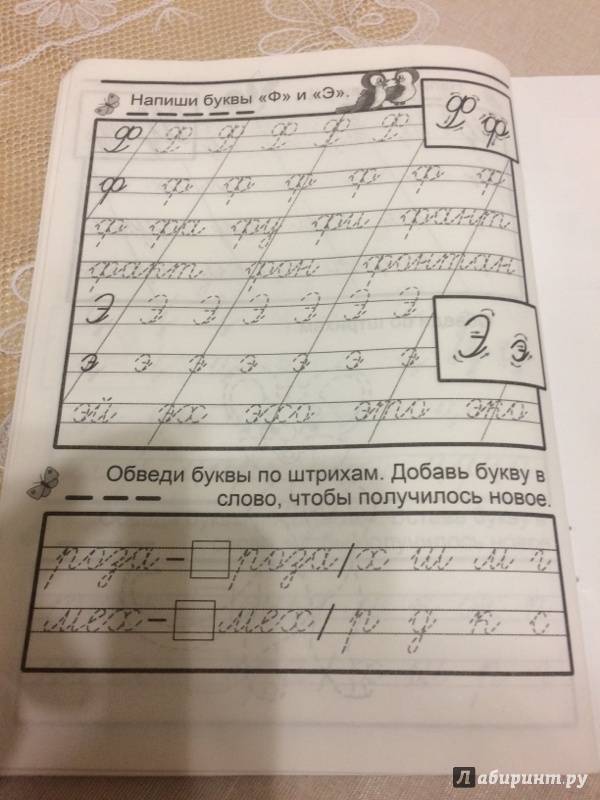 Напиши буквы «Ф» и «Э».
Ф Ф Ф Ф Ф Ф
Ф ф
ф ф ф ф ф ф ф
ф фа фу фи фант
фарт фон фонтан
Э Э Э Э Э Э Э
Э э
э э э э э э э
эй эх эхо это эту
Обведи буквы по штрихам. Добавь букву в
слово, чтобы получилось новое.
роза – роза / х ш м г
мех – мех / р у к с
Лабиринт.ру